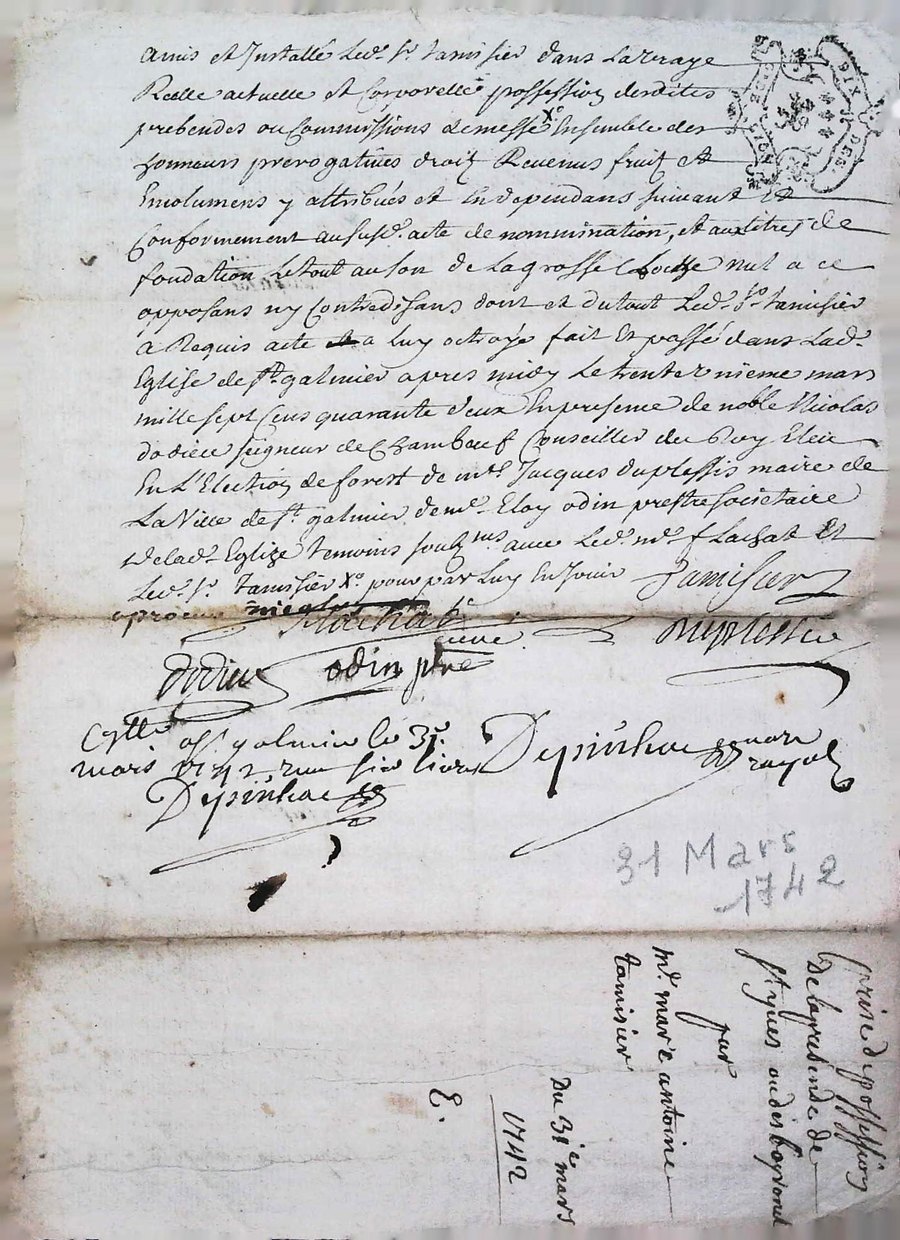 amis et Installé Led. Sr. tamisier dans La vraye
Reelle actuelle et Corporelle possession desdites
prebendes ou Commissions de messe Xo Ensemble des
honneurs prerogatives droit Revenus fruit et
Emolumens y attribués et En dependans suivant et
Conformement au susd. acte de nommination, et aux titres de
fondation Le tout au son de La grosse Cloche nul a ce
opposans ny Contredisans dont et du tout Led. Sr. tamisier
a Requis acte a Luy octroyé fait Et passé dans Lad.
Eglise de St. galmier apres midy Le trente unieme mars
mille sept Cens quarante deux En presence de noble Nicolas
dodieu seigneur de Chambœuf Conseiller du Roy Eleu
En L'Election de forest de mre Jacques duplessis maire de
La Ville de St. galmier de me. Eloy odin prestre societaire
de Lad. Eglize temoins soubznés avec Led. me. f Lachat Et
Led. Sr. tamisier Xo pour par Luy En Jouir
Tamisier
approuvé
f Lachat
curé
Duplessis
dodieu
odin ptre
Cllé a St. galmier le 31e
mars 1742
Depinhac
Depinhac
notaire
royal
31 Mars
1742
prise de possession
De la prebende de
St yves ou des
par
me. marc antoine
tamisier
Du 31e mars
1742
E.